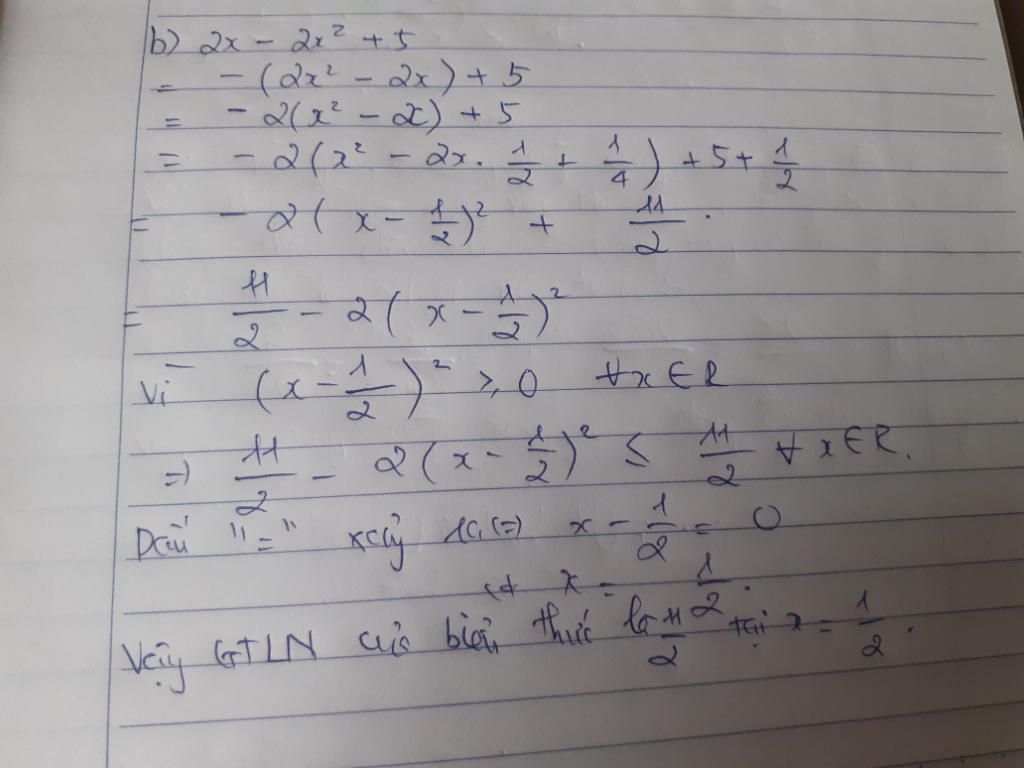 b) 2x - 2x² + 5
= - (2x² - 2x) + 5
= - 2(x² - x) + 5
= - 2(x² - 2x . 1/2 + 1/4) + 5 + 1/2
= - 2(x - 1/2)² + 11/2 .
= 11/2 - 2(x - 1/2)²
Vì (x - 1/2)² ⩾ 0 ∀x ∈ R
=> 11/2 - 2(x - 1/2)² ≤ 11/2 ∀ x ∈ R.
Dấu "=" xảy ra (=) x - 1/2 = 0
x = 1/2 .
Vậy GTLN của biểu thức là 11/2 tại x = 1/2 .